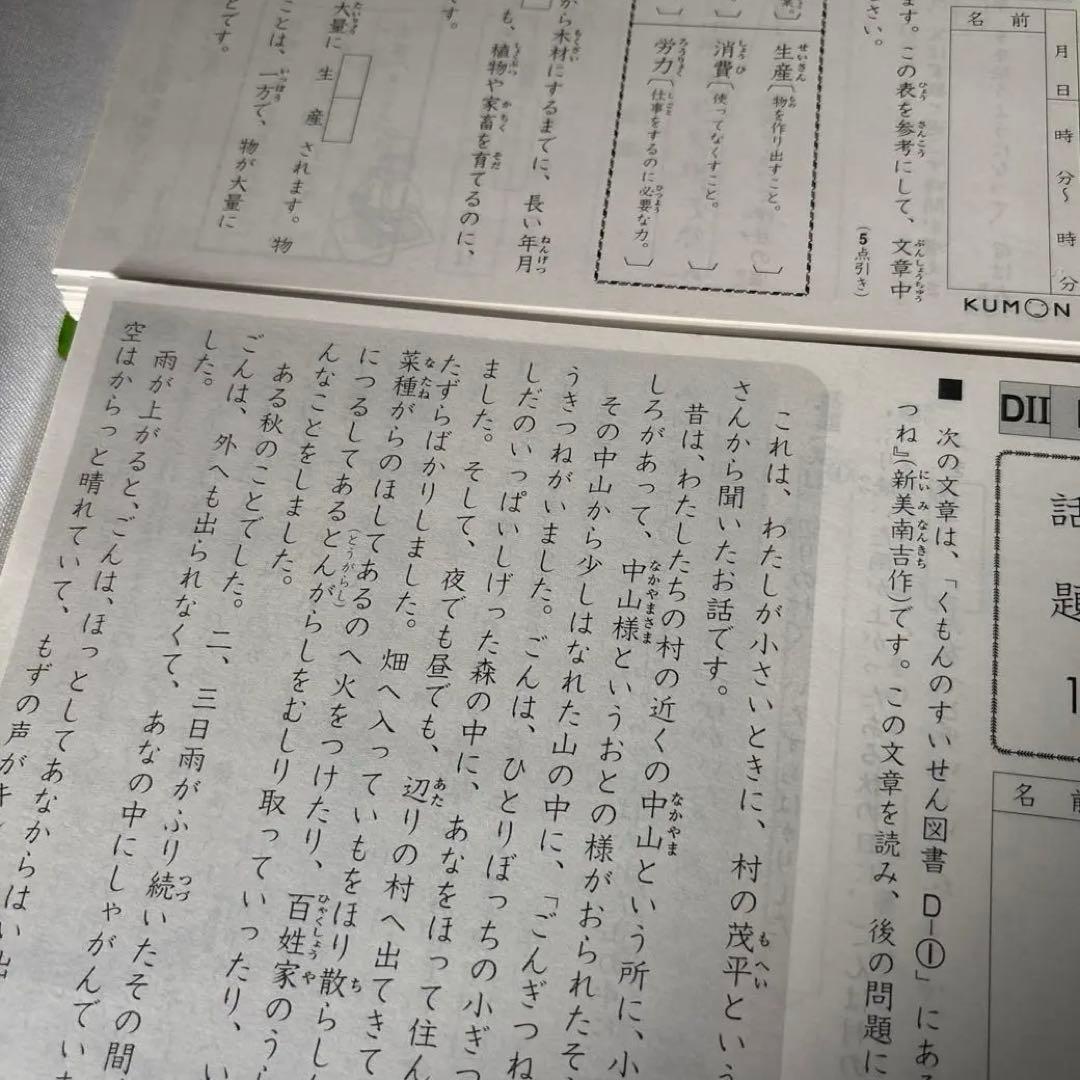 名前
月日
時
分～
時
分
KUMON
ます。この表を参考にして、文章中
さい。
(5点引き)
生産〔物を作り出すこと。〕
消費〔使ってなくすこと。〕
労力〔仕事をするのに必要な力。〕
から木材にするまでに、長い年月
も、植物や家畜を育てるのに、
です。
大量に
生産
されます。物
ことは、一方で、物が大量に
とです。
DII
話題1
名前
■次の文章は、「くもんのすいせん図書 D-Ⅰ」にある
つね』(新美南吉作)です。この文章を読み、後の問題に
これは、わたしが小さいときに、村の茂平という
さんから聞いたお話です。
昔は、わたしたちの村の近くの中山という所に、小
しろがあって、中山様というおとの様がおられたそ
その中山から少しはなれた山の中に、「ごんぎつね
うきつねがいました。ごんは、ひとりぼっちの小ぎつ
しだのいっぱいしげった森の中に、あなをほって住ん
ました。そして、夜でも昼でも、辺りの村へ出てきて
たずらばかりしました。畑へ入っていもをほり散らし
菜種がらのほしてあるのへ火をつけたり、百姓家のうら
につるしてあるとんがらし(とうがらし)をむしり取っていったり、い
んなことをしました。
ある秋のことでした。二、三日雨がふり続いたその間
ごんは、外へも出られなくて、あなの中にしゃがんでい
した。
雨が上がると、ごんは、ほっとしてあなからはい出
空はからっと晴れていて、もずの声がキ